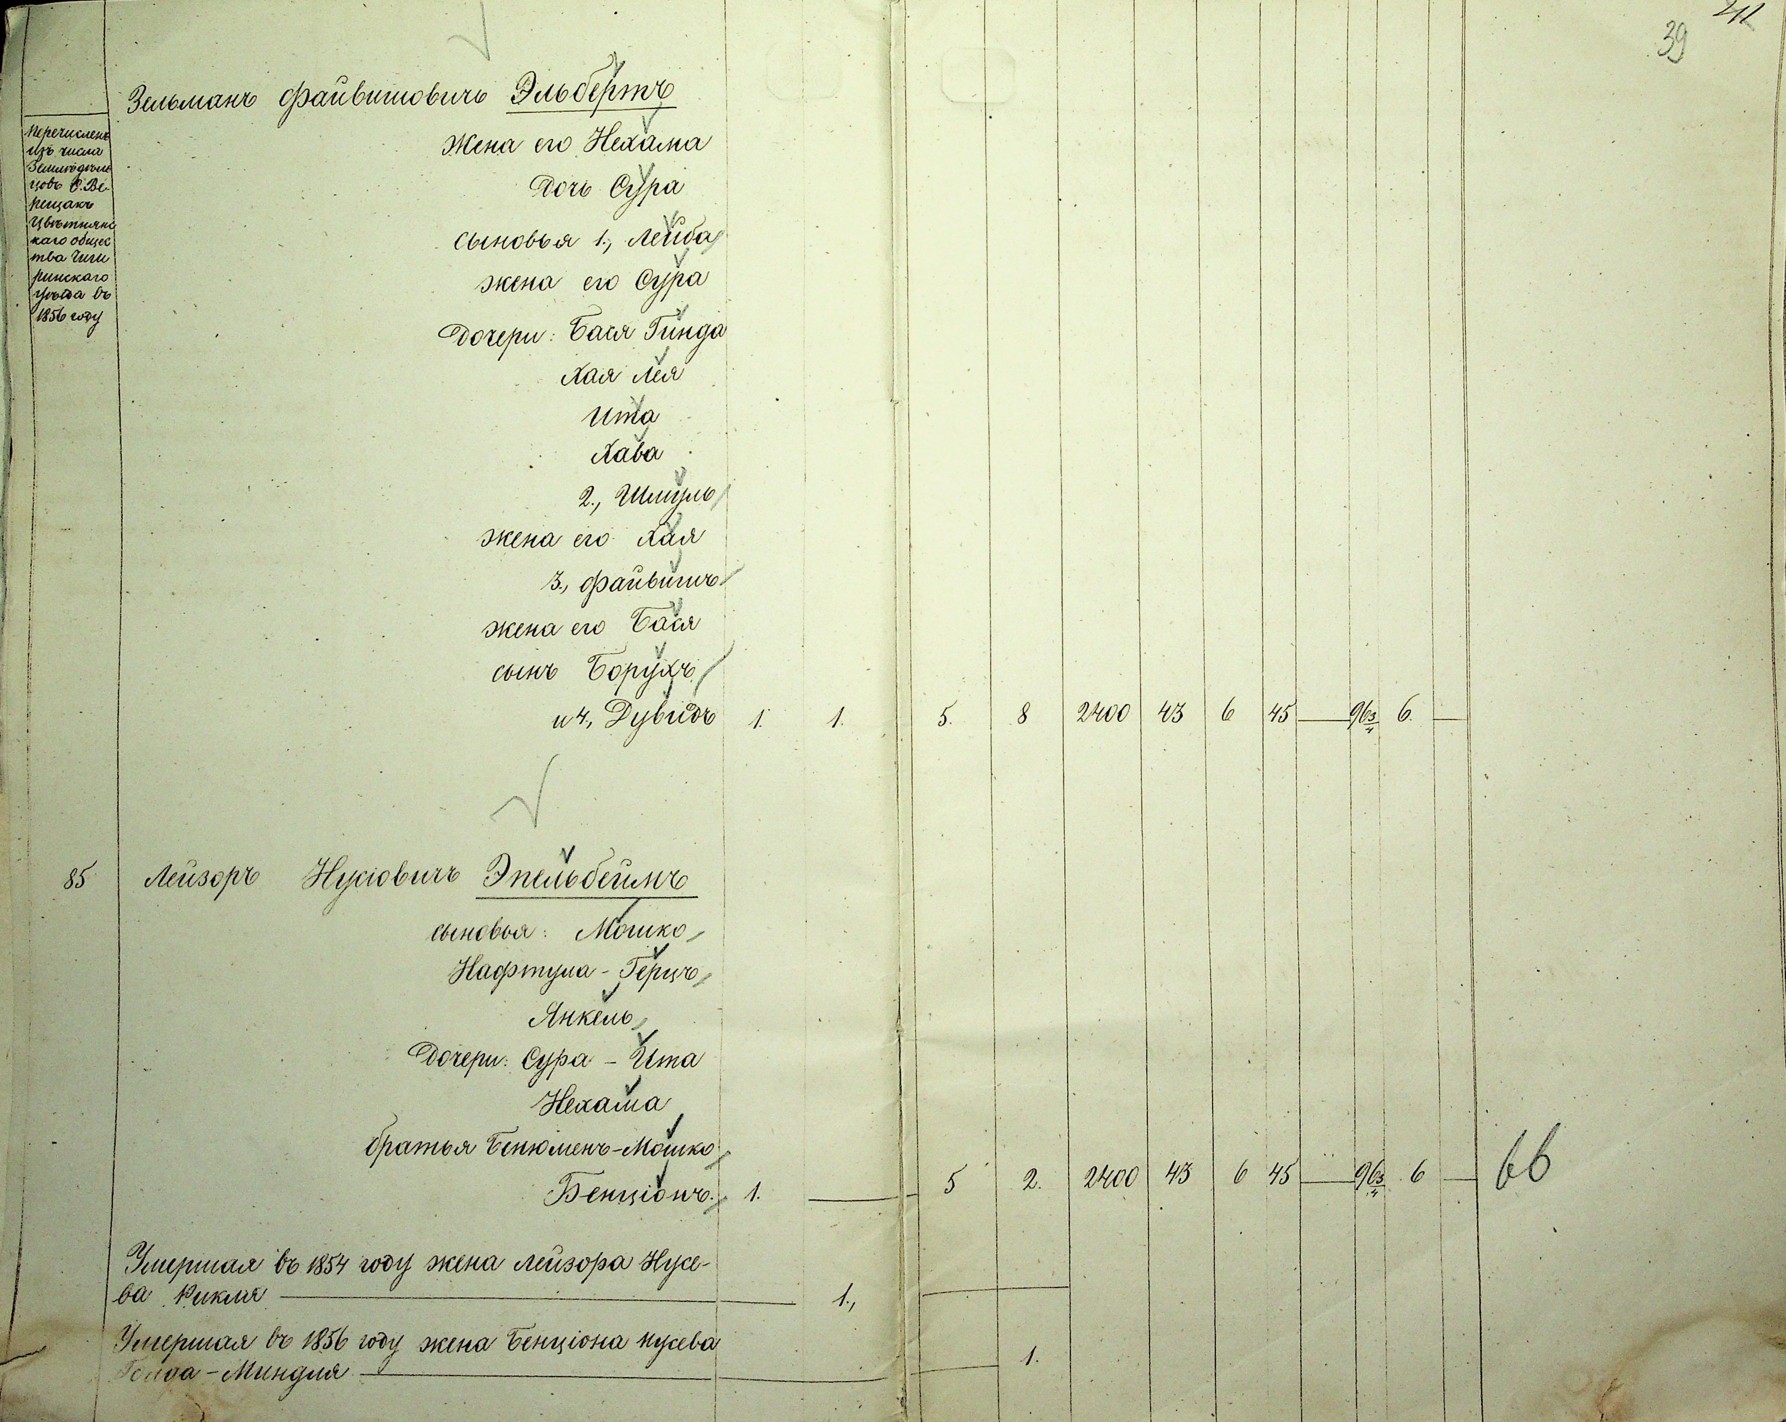 41
39
Зельманъ Файвишовичъ Эльбертъ
Перечисленъ
изъ числа
Земледѣль
цовъ С. Ве-
рещакъ
Цвѣтнянс
каго общес
тва Чиги
ринскаго
уѣзда въ
1856 году
жена его Нехама
дочь Сура
сыновья 1., Лейба
жена его Сура
дочери: Бася Гинда
Хая Лея
Ита
Хава
2., Шмуль
жена его Хая
3., Файвишъ
жена его Бася
сынъ Борухъ
и 4, Дувидъ 1. 1. 5. 8 2400 43 6 45 — 96 3/4 6. —
85 Лейзоръ Нусіовичъ Эпельбеймъ
сыновья: Мошко
Нафтула - Герцъ
Янкель
дочери: Сура - Ита
Нехама
братья Бенюменъ-Мошко
Бенціонъ. 1. — 5 2. 2400 43 6 45 — 96 3/4 6 — 66
Умершая въ 1854 году жена Лейзора Нусе-
ва Рикля — 1.,
Умершая въ 1856 году жена Бенціона Нусева
Голда - Миндля — 1.